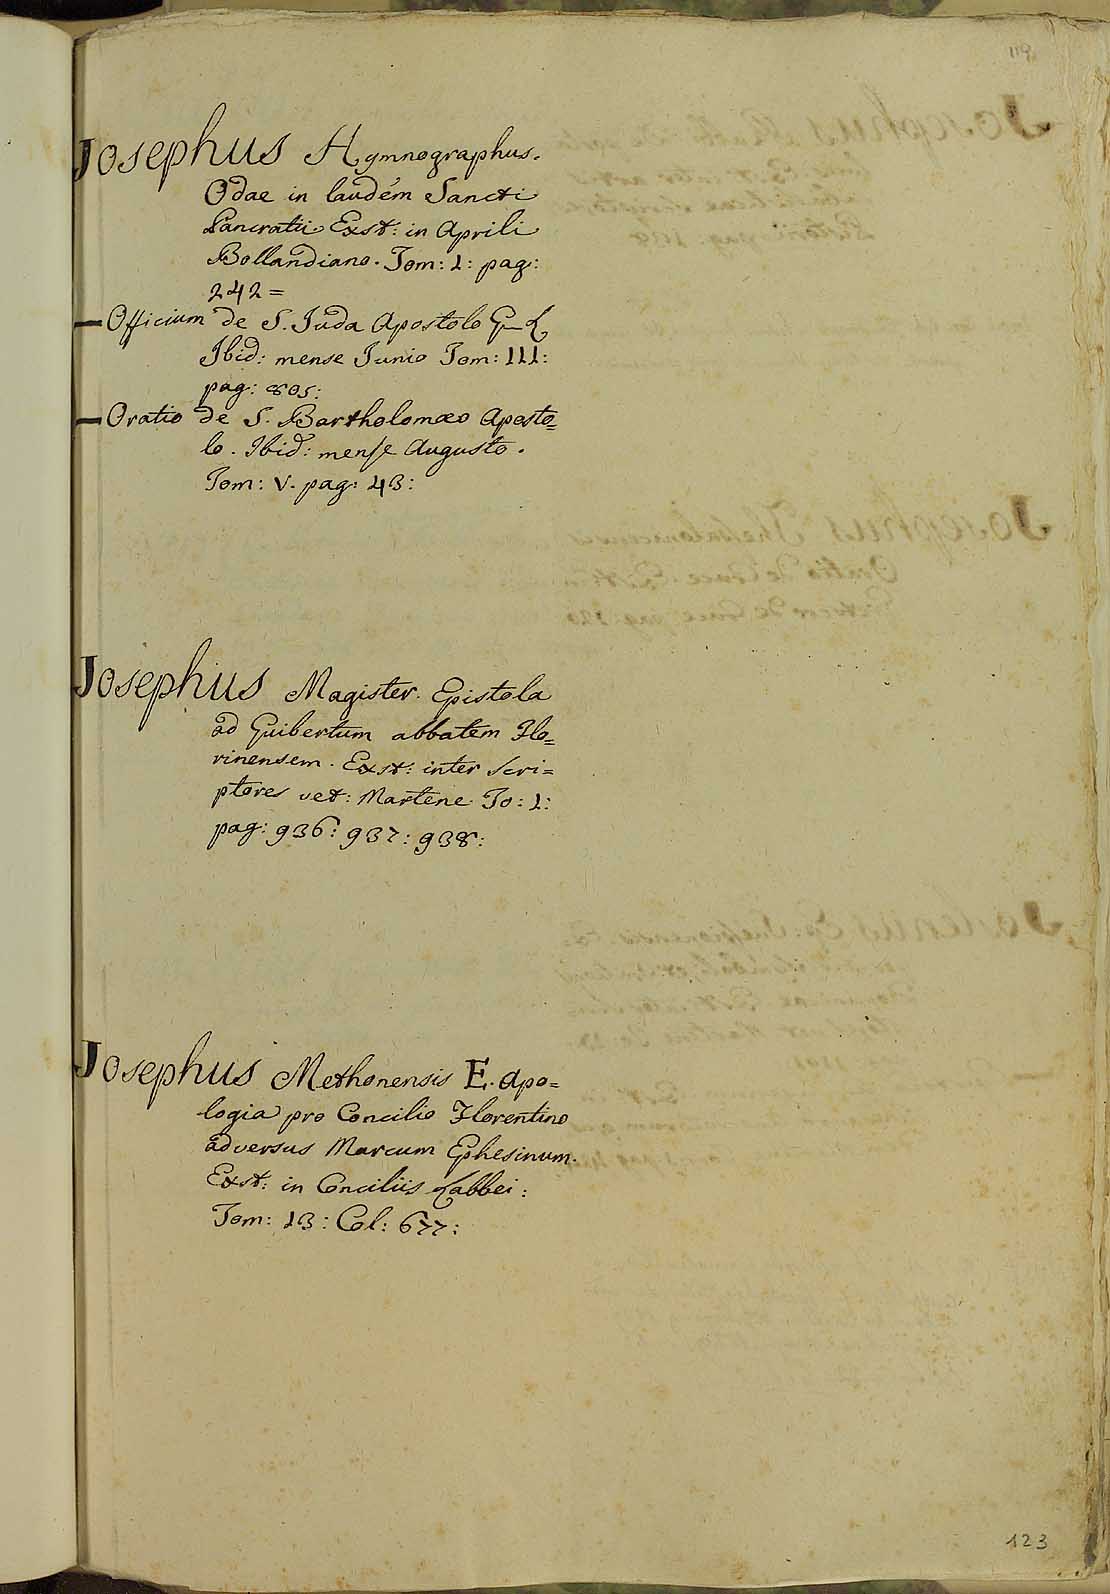 119
Josephus Hymnographus.
Odae in laudem Sancti
Pancratii Exst: in Aprili
Bollandiano. Tom: 1: pag:
242=
— Officium de S. Juda Apostolo G_L
Ibid: mense Junio Tom: III:
pag: 805:
— Oratio de S. Bartholomæo Aposto=
lo. Ibid: mense Augusto.
Tom: V. pag: 43:
Josephus Magister. Epistola
ad Guibertum abbatem Flo=
rinensem. Exst: inter scri=
ptores vet: Martene. To: 1:
pag: 936: 937: 938:
Josephus Methonensis E. Apo=
logia pro Concilio Florentino
adversus Marcum Ephesinum.
Exst: in Conciliis Labbei:
Tom: 13: Col: 677:
123